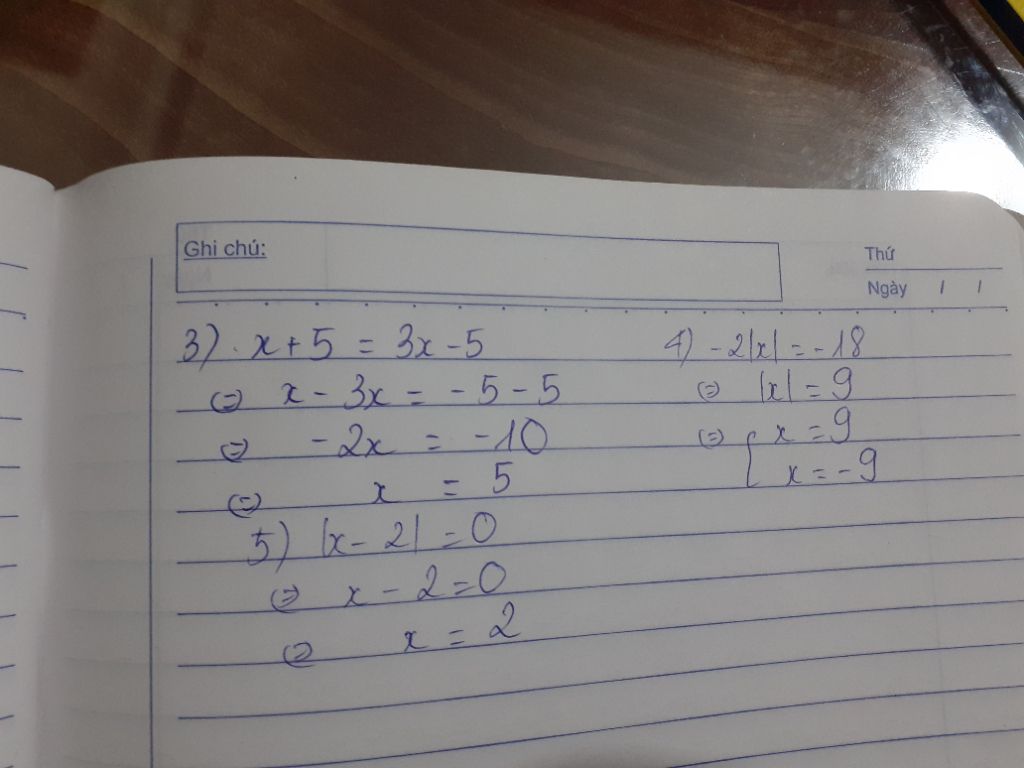 Ghi chú:
Thứ
Ngày / /
3) x + 5 = 3x - 5
⇔ x - 3x = -5 - 5
⇔ -2x = -10
⇔ x = 5
4) -2|x| = -18
⇔ |x| = 9
⇔ [ x = 9
x = -9
5) |x - 2| = 0
⇔ x - 2 = 0
⇔ x = 2